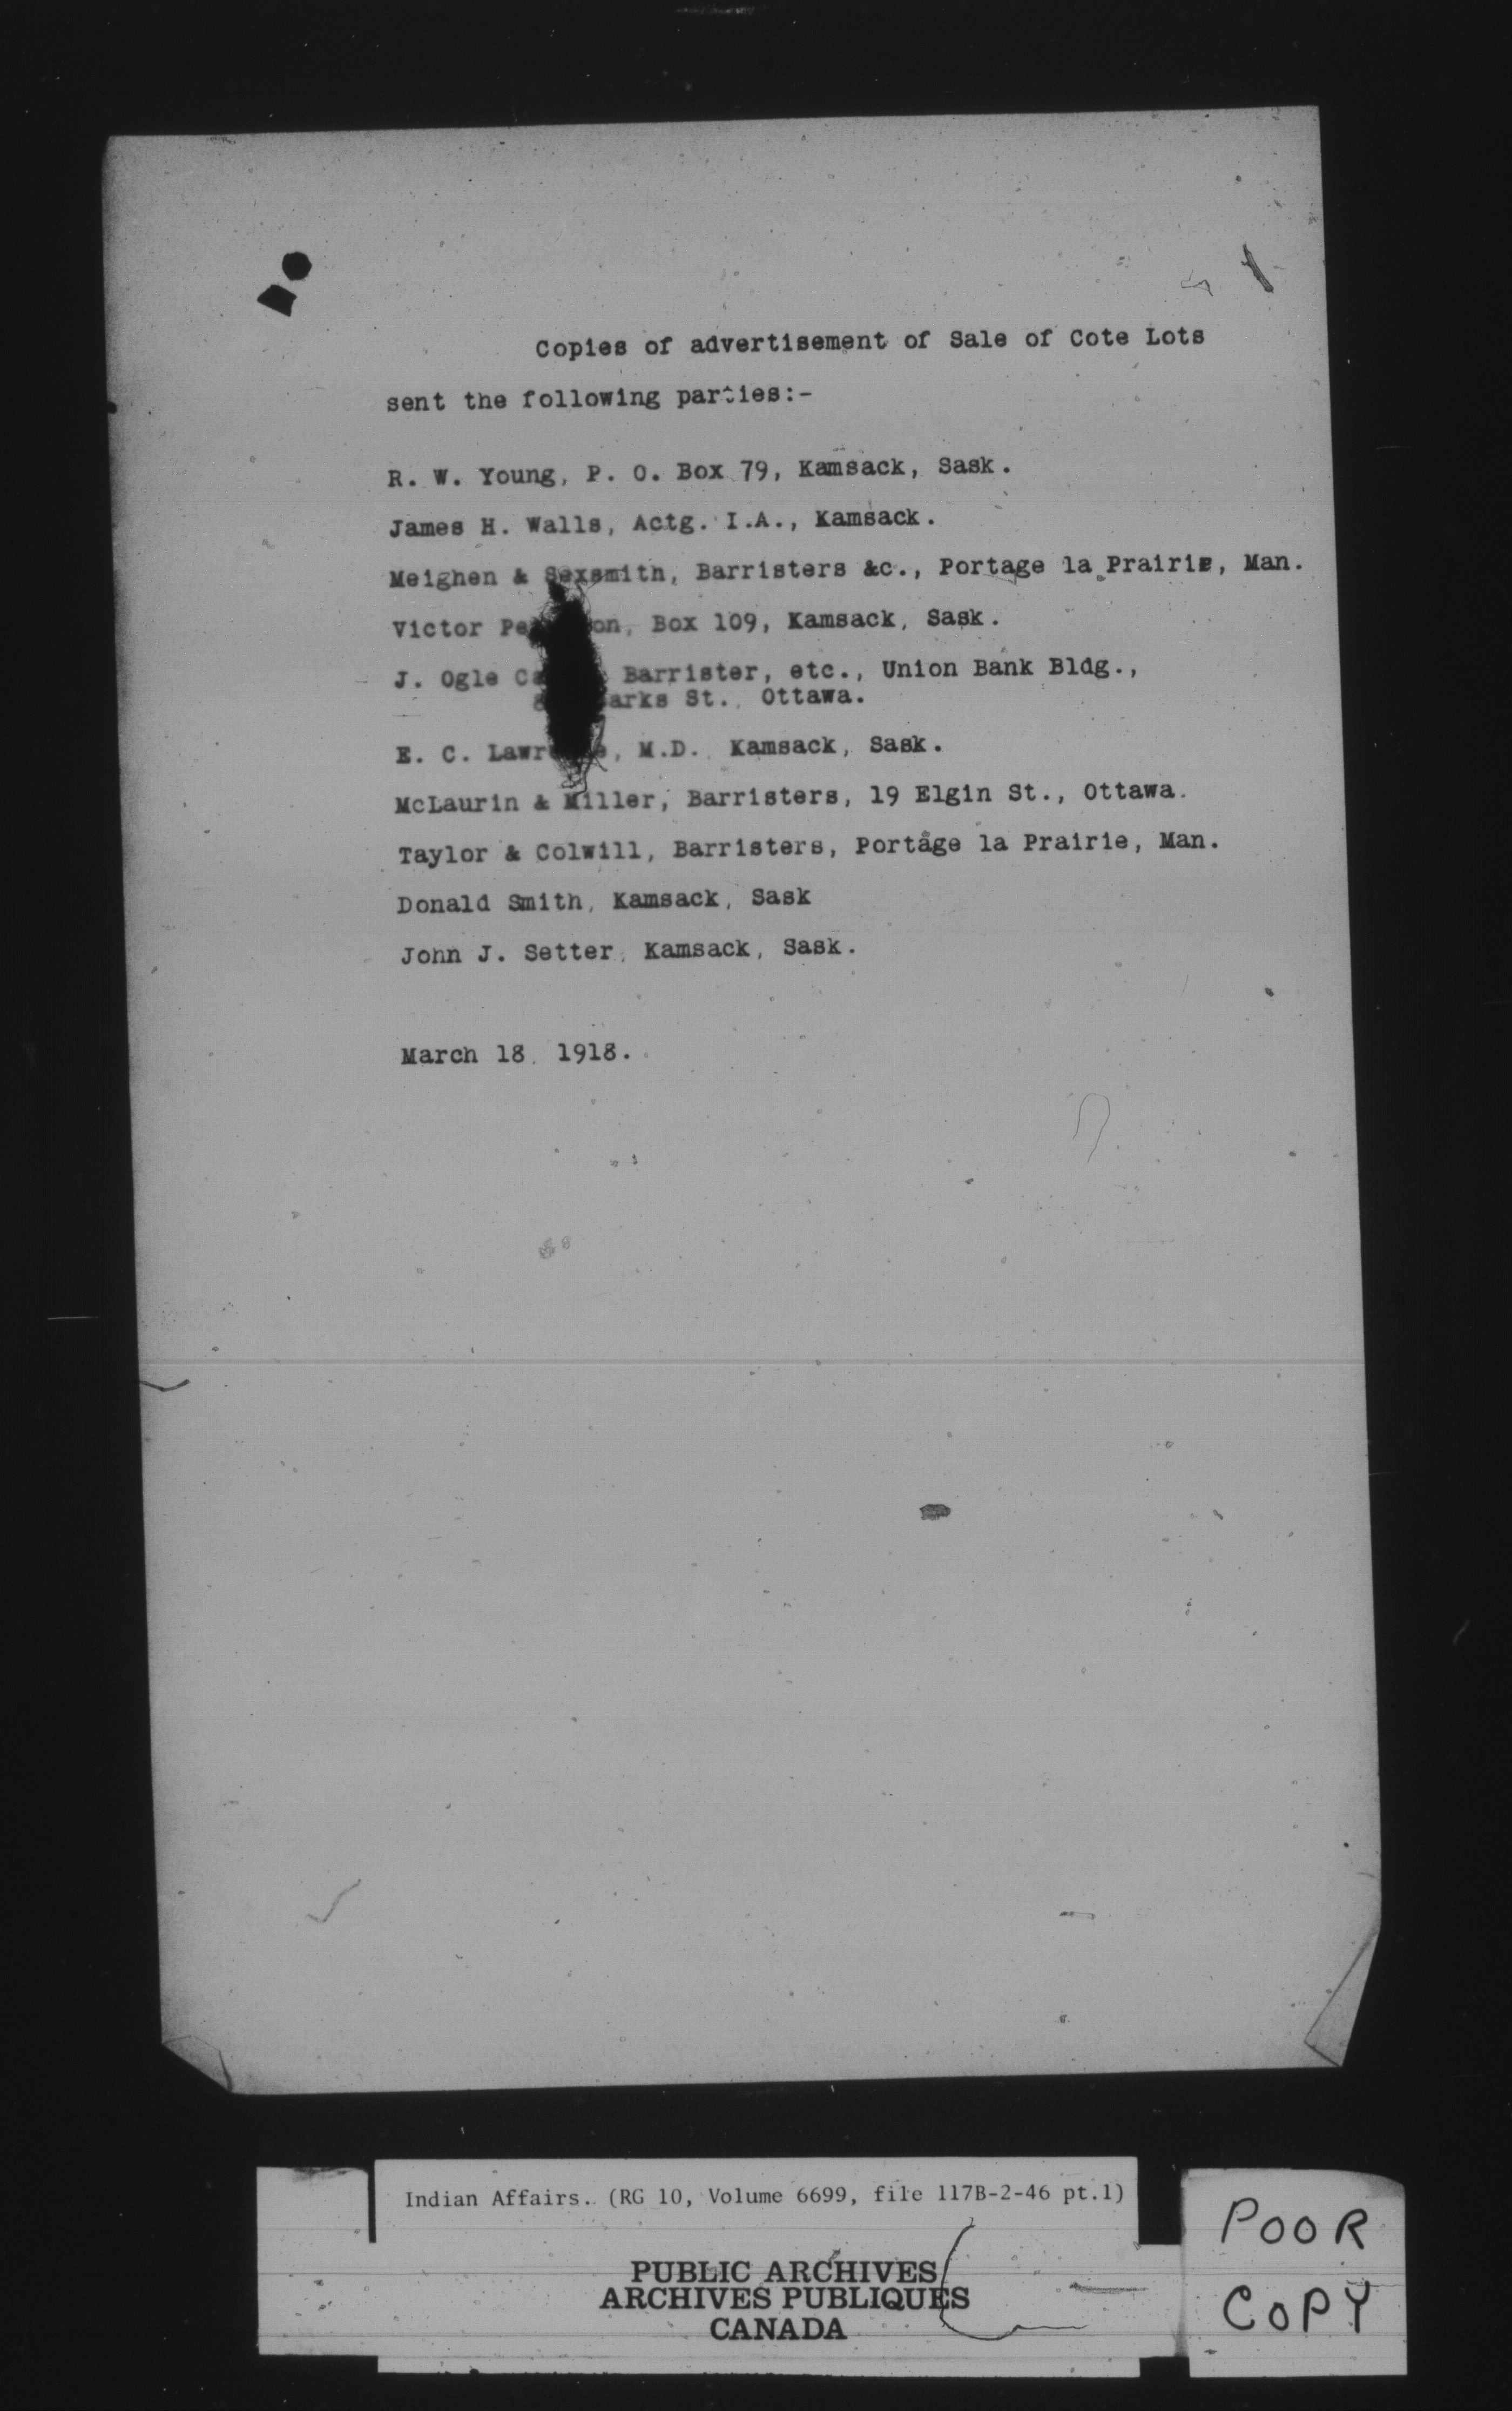 Copies of advertisement of Sale of Cote Lots
sent the following parties:-
R. W. Young, P. O. Box 79, Kamsack, Sask.
James H. Walls, Actg. I.A., Kamsack.
Meighen & Sexsmith, Barristers &c., Portage la Prairie, Man.
Victor Box 109, Kamsack, Sask.
J. Ogle Barrister, etc., Union Bank Bldg.,
St., Ottawa.
E. C. M.D. Kamsack, Sask.
McLaurin & Miller, Barristers, 19 Elgin St., Ottawa.
Taylor & Colwill, Barristers, Portage la Prairie, Man.
Donald Smith, Kamsack, Sask
John J. Setter, Kamsack, Sask.
March 18, 1918.
Indian Affairs. (RG 10, Volume 6699, file 117B-2-46 pt.1)
PUBLIC ARCHIVES
ARCHIVES PUBLIQUES
CANADA
POOR
COPY